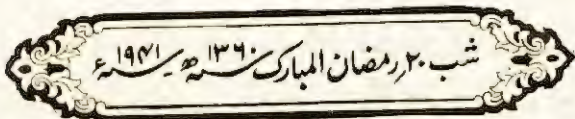 شب ۲۰ رمضان المبارک ۱۳۶۰ھ ۱۹۴۱ء